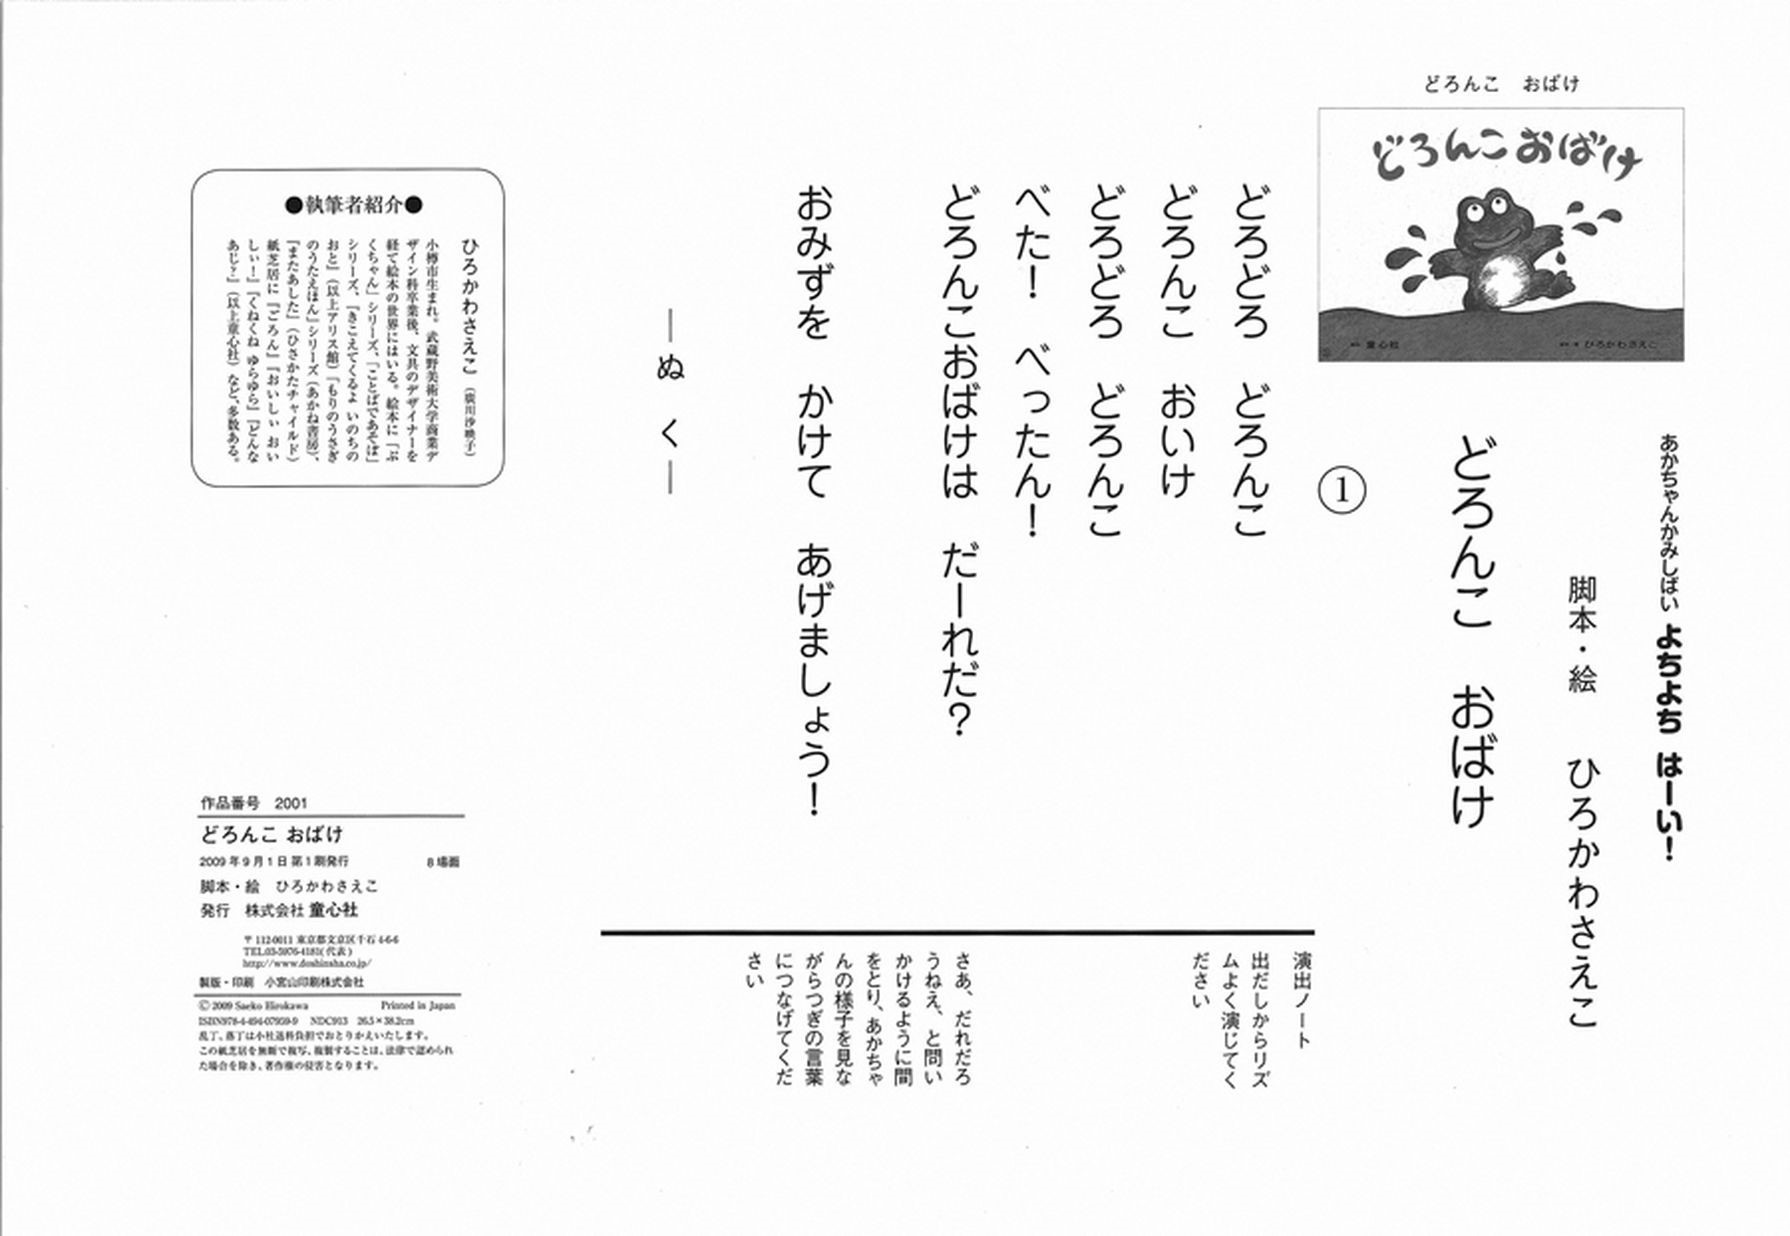 どろんこ　おばけ
どろんこ おばけ
童心社
ひろかわさえこ
あかちゃんかみしばい よちよち はーい！
脚本・絵　ひろかわさえこ
どろんこ　おばけ
①
どろどろ　どろんこ
どろんこ　おいけ
どろどろ　どろんこ
べた！　べったん！
どろんこおばけは　だーれだ？
おみずを　かけて　あげましょう！
―ぬ　く―
演出ノート
出だしからリズ
ムよく演じてく
ださい
さあ、だれだろ
うねえ、と問い
かけるように間
をとり、あかちゃ
んの様子を見な
がらつぎの言葉
につなげてくだ
さい
●執筆者紹介●
ひろかわさえこ（廣川沙映子）
小樽市生まれ。武蔵野美術大学商業デ
ザイン科卒業後、文具のデザイナーを
経て絵本の世界にはいる。絵本に「ぷ
くちゃん」シリーズ、「ことばであそぼ」
シリーズ、『きこえてくるよ いのちの
おと』（以上アリス館）『もりのうさぎ
のうたえほん』シリーズ（あかね書房）、
『またあした』（ひさかたチャイルド）
紙芝居に『ごろん』『おいしぃ おい
しぃ！』『くねくね ゆらゆら』『どんな
あじ？』（以上童心社）など、多数ある。
作品番号　2001
どろんこ おばけ
2009年9月1日 第1刷発行　8場面
脚本・絵　ひろかわさえこ
発行　株式会社 童心社
〒112-0011 東京都文京区千石4-6-6
TEL.03-5976-4181(代表)
http://www.doshinsha.co.jp/
製版・印刷　小宮山印刷株式会社
Ⓒ 2009 Saeko Hirokawa　Printed in Japan
ISBN978-4-494-07959-9　NDC913　26.5×38.2cm
乱丁、落丁は小社送料負担でおとりかえいたします。
この紙芝居を無断で複写、複製することは、法律で認められ
た場合を除き、著作権の侵害となります。